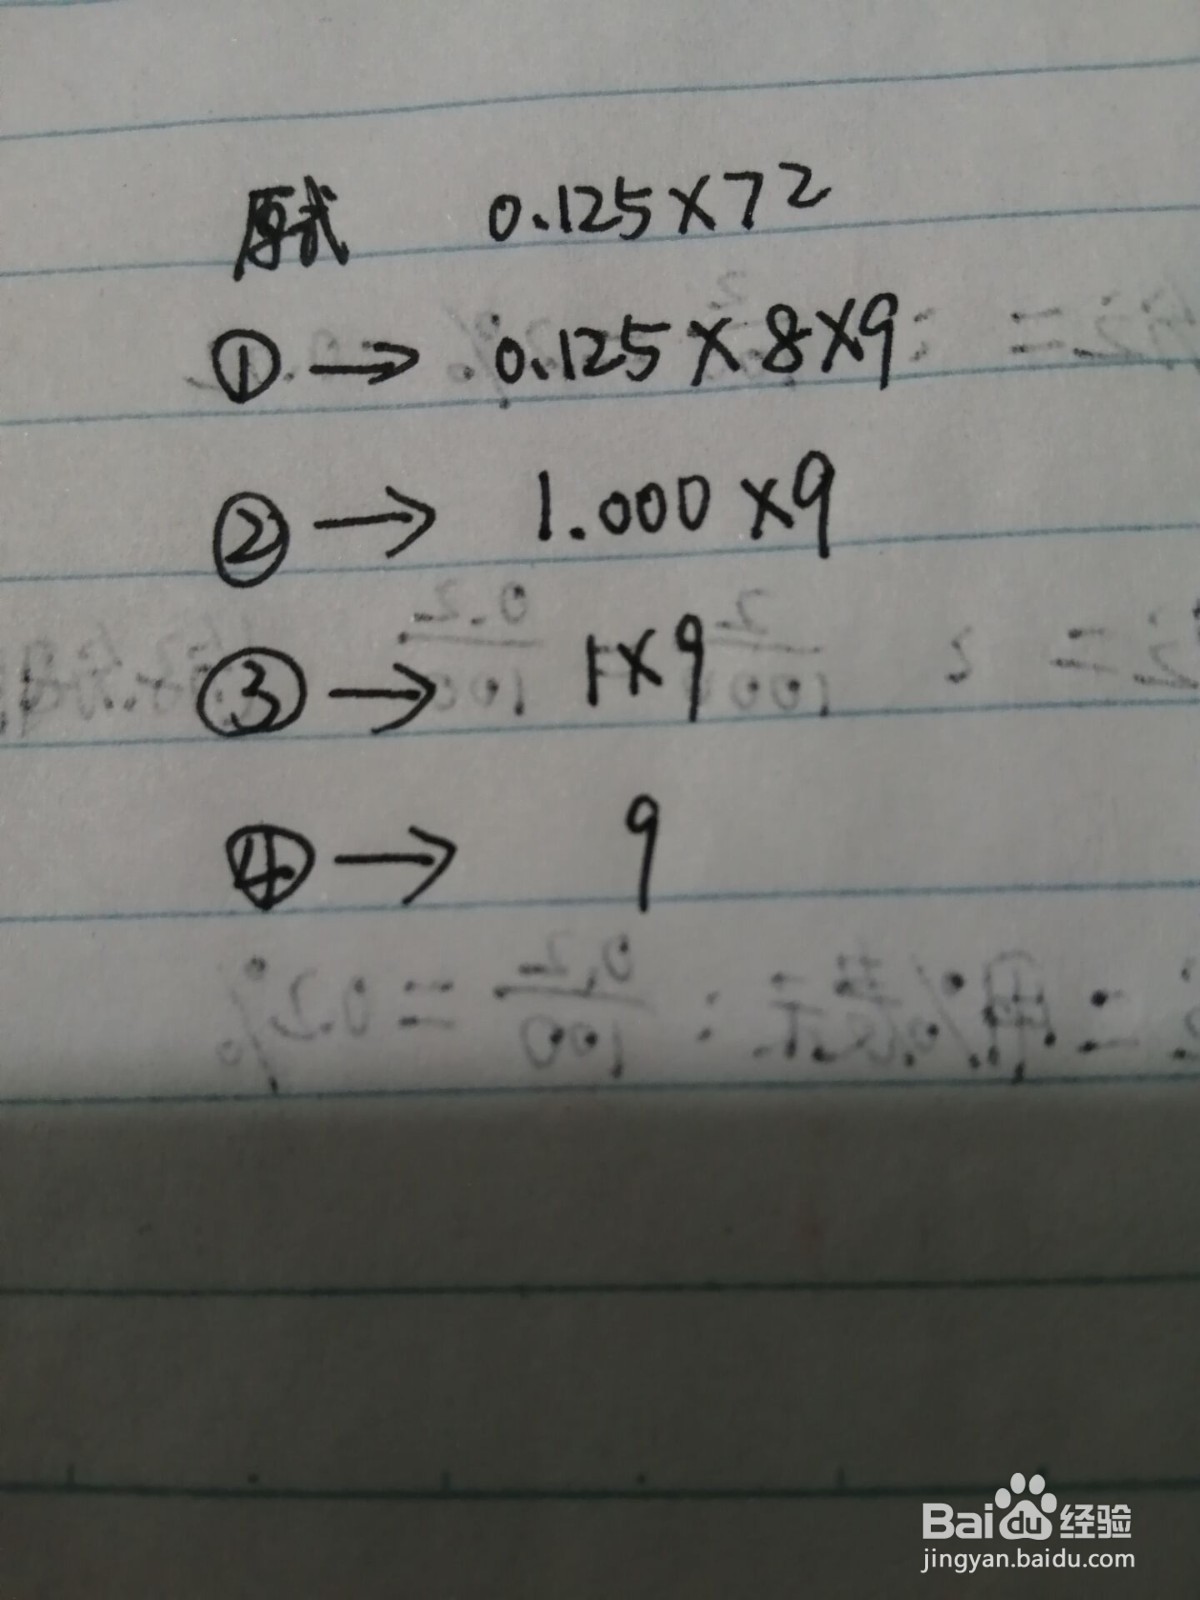 原式 0.125×72
① → 0.125×8×9
② → 1.000×9
③ → 1×9
④ → 9
Baidu经验
jingyan.baidu.com